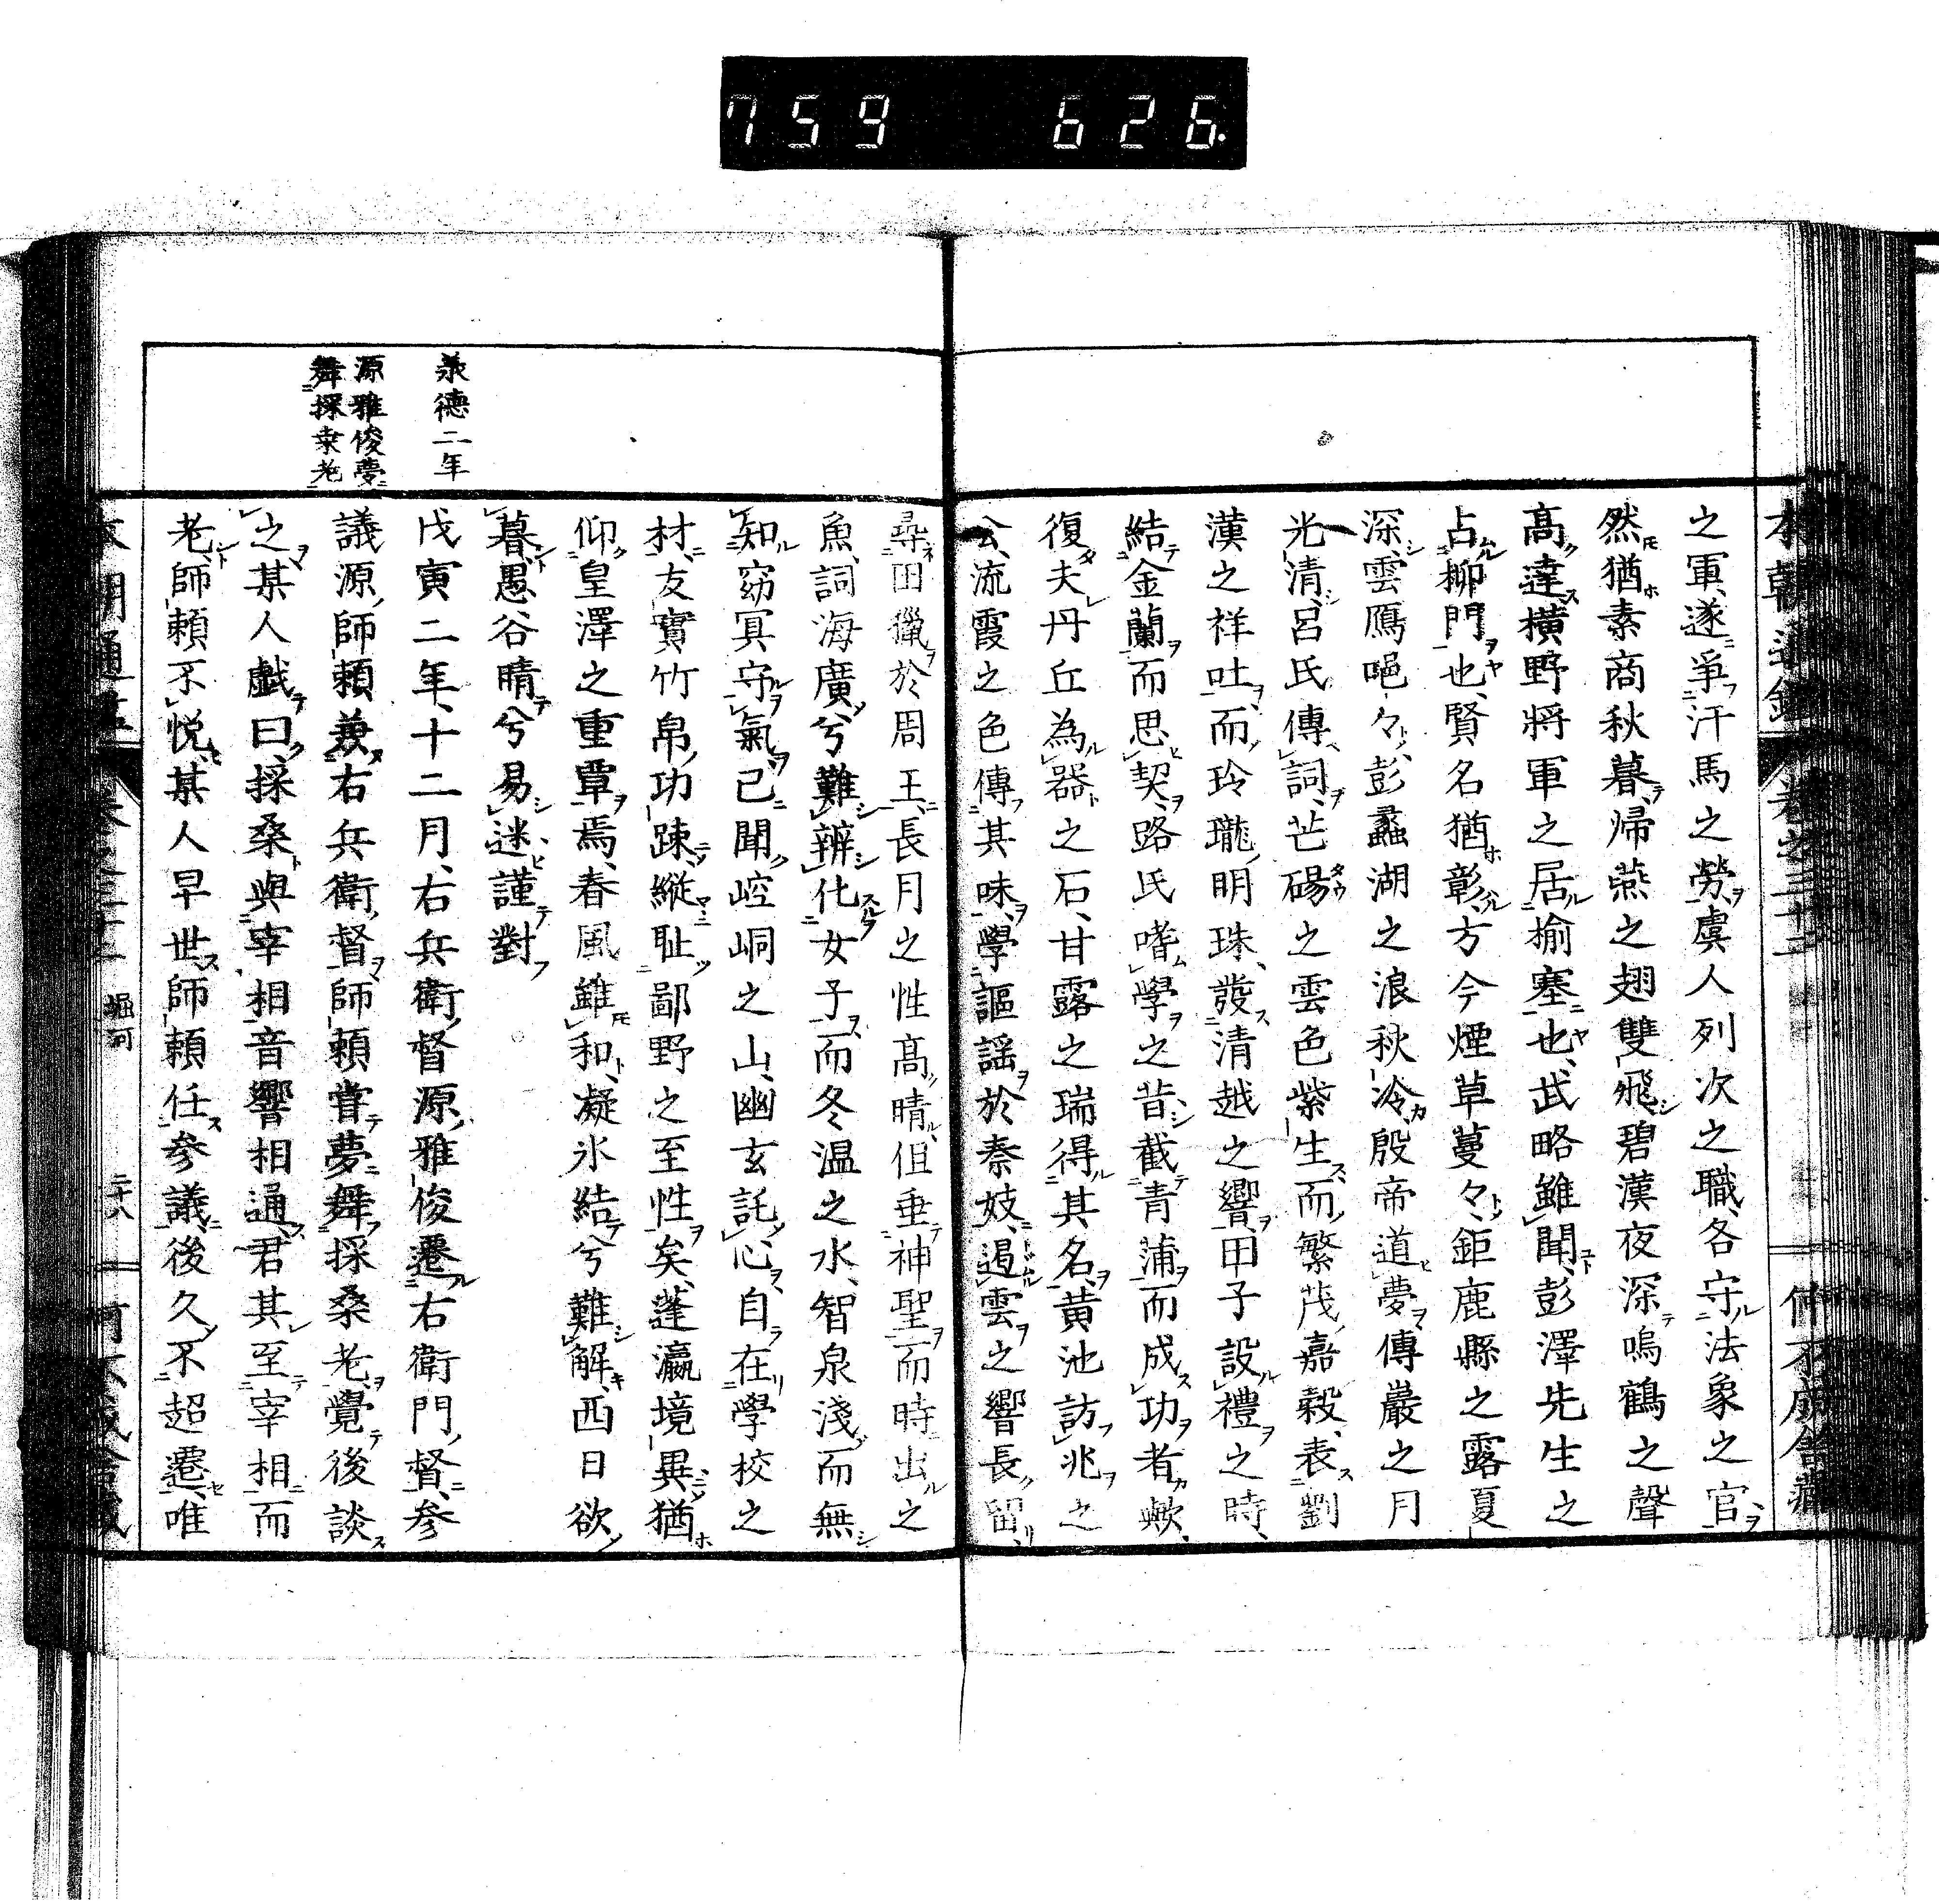 759 626.
之軍、遂爭汗馬之勞、虞人列次之職、各守法象之官、
然猶素商秋暮、帰燕之翅雙飛、碧漢夜深、鳴鶴之聲
高達、橫野將軍之居榆塞也、武略雖聞、彭澤先生之
占柳門也、賢名猶彰、方今煙草蔓々、鉅鹿縣之露夏
深、雲鴈嗈々、彭蠡湖之浪秋冷、殷帝道夢、傳巖之月
光清、呂氏傳詞、芒碭之雲色紫、生而繁茂、嘉穀表劉
漢之祥、吐而玲瓏、明珠發清越之響、田子設禮之時、
結金蘭而思契、路氏嗜學之昔、截青蒲而成功者歟、
復夫丹丘為器之石、甘露之瑞得其名、黃池訪兆之
公、流霞之色傳其味、學謳謠於秦妓、遏雲之響長留、
尋田獵於周王、長月之性高晴、但垂神聖而時出之
魚、詞海廣兮難辨、化女子而冬温之水、智泉淺而無
知、窈冥守氣、已聞崆峒之山、幽玄託心、自在學校之
材、友實竹帛、功踈縱耻鄙野之至性矣、蓬瀛境異、猶
仰皇澤之重覃焉、春風雖和、凝氷結兮難解、西日欲
暮、愚谷晴兮易迷、謹對
承德二年
戊寅二年、十二月、右兵衛督源雅俊遷右衛門督、參
源雅俊夢
舞採桒老
議源師頼兼右兵衛督、師頼嘗夢舞採桑老、覺後談
之、某人戯曰、採桑與宰相音響相通、君其至宰相而
老、師頼不悦、某人早世、師頼任參議、後久不超遷、唯
堀河
二十八